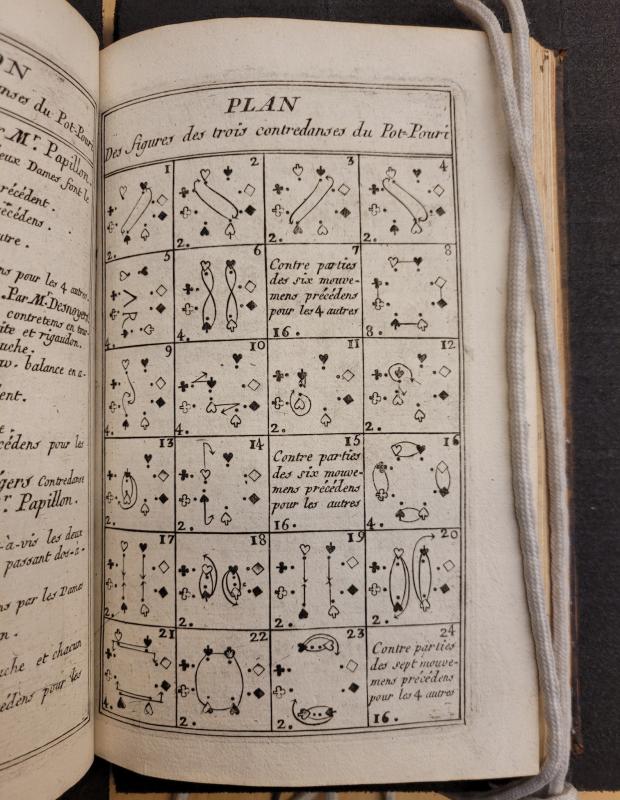 ON
nses du Pot-Pouri
Mr. Papillon.
eux Dames font le
récédent.
récédens.
utre.
ns pour les 4 autres.
.Par Mr. Desnoyers
contretems en tour-
ite et rigaudon.
uche.
w. balance en a-
ent.
e.
cédens pour les
gers contredanse
r. Papillon.
s-à-vis les deux
passant dos-à-
ns par les Dames
n.
uche et chacun
écédens pour les
PLAN
Des figures des trois contredanses du Pot-Pouri
1
2.
2
2.
3
2.
4
2.
5
4.
6
4.
7
Contre parties
des six mouve-
mens précédens
pour les 4 autres
16.
8
8.
9
4.
10
4.
11
2.
12
2.
13
2.
14
2.
15
Contre parties
des six mouve-
mens précédens
pour les autres
16.
16
4.
17
2.
18
2.
19
2.
20
2.
21
4.
22
2.
23
2.
24
Contre parties
des sept mouve-
mens précédens
pour les 4 autres
16.